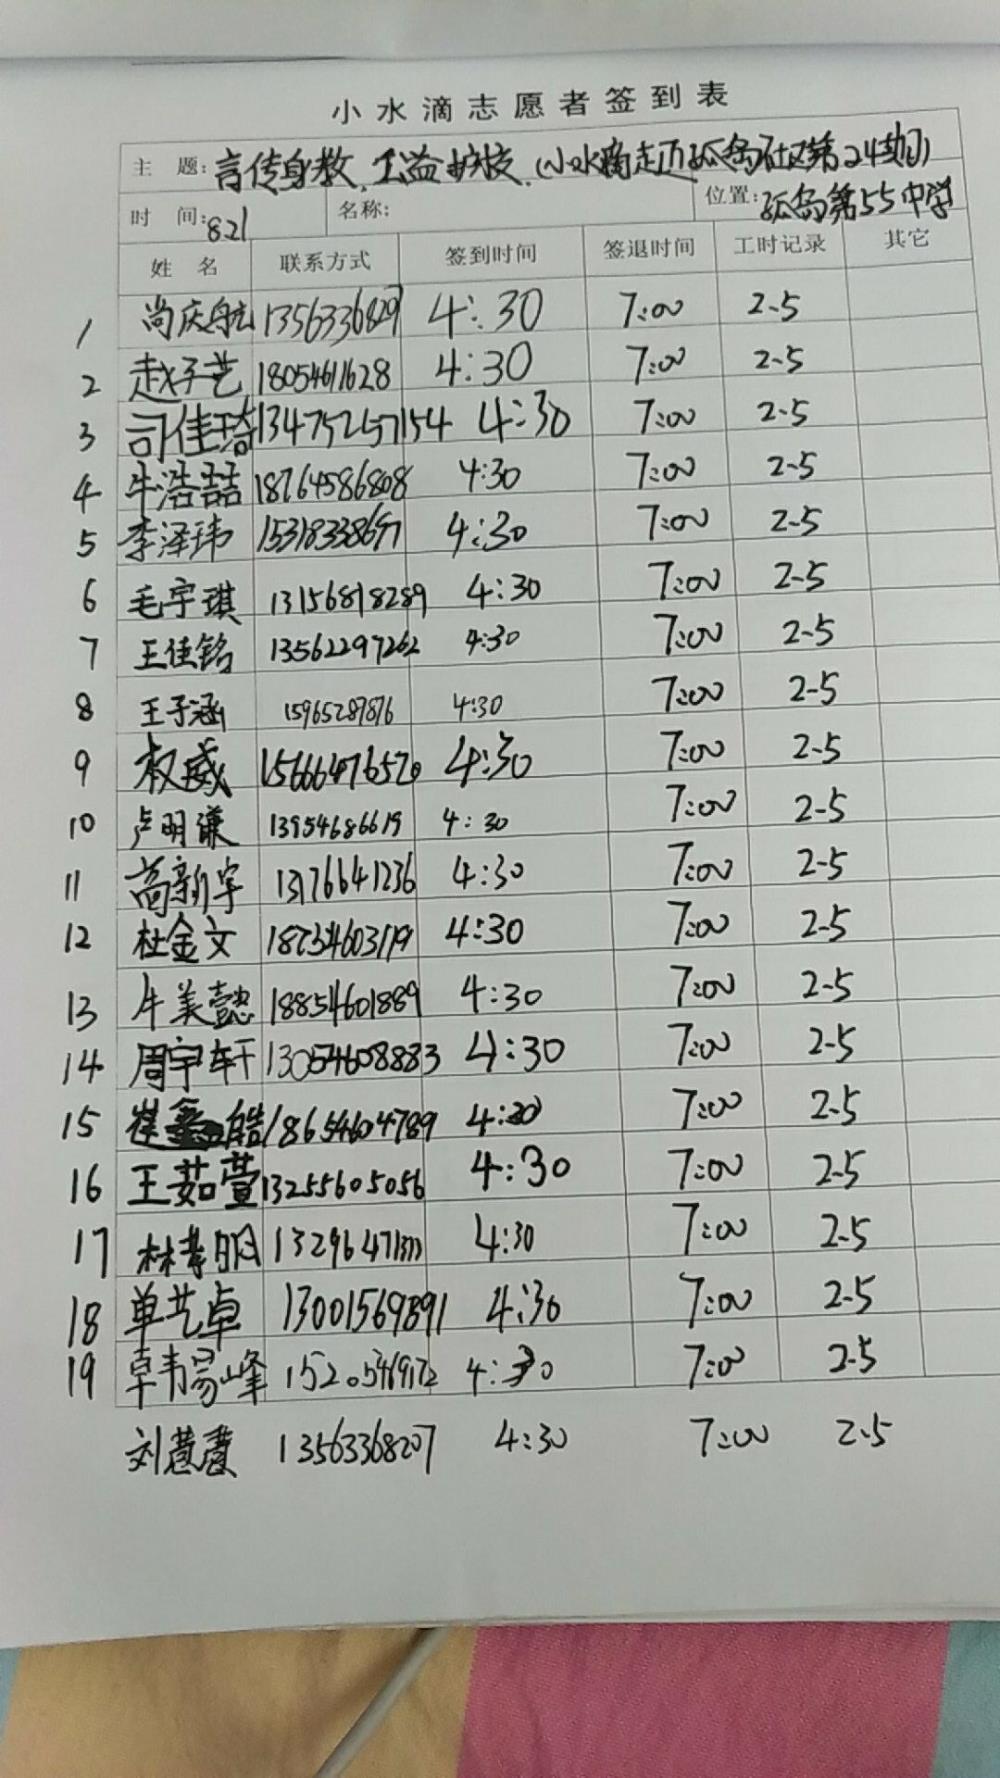 小水滴志愿者签到表
主 题: 言传身教.公益护校.(小水滴走进孤岛社区第24期)
时 间: 821 名称: 位置: 孤岛第55中学
姓 名 联系方式 签到时间 签退时间 工时记录 其它
1 尚庆航 13563368297 4:30 7:00 2.5
2 赵子艺 18054611628 4:30 7:00 2.5
3 司佳琦 13475257154 4:30 7:00 2.5
4 牛浩喆 18764586808 4:30 7:00 2.5
5 李泽玮 15318338697 4:30 7:00 2.5
6 毛宇琪 13156818289 4:30 7:00 2.5
7 王佳铭 13562297262 4:30 7:00 2.5
8 王子涵 15965287876 4:30 7:00 2.5
9 权威 15666476520 4:30 7:00 2.5
10 卢明谦 13954686619 4:30 7:00 2.5
11 高新宇 13176641236 4:30 7:00 2.5
12 杜金文 18734603119 4:30 7:00 2.5
13 牛美懿 18854601889 4:30 7:00 2.5
14 周宇轩 13054608883 4:30 7:00 2.5
15 崔 皓 18654604789 4:30 7:00 2.5
16 王茹萱 13255605056 4:30 7:00 2.5
17 林 4:30 7:00 2.5
18 单艺卓 13001569891 4:30 7:00 2.5
19 卓韦易峰 4:30 7:00 2.5
刘 13563368207 4:30 7:00 2.5